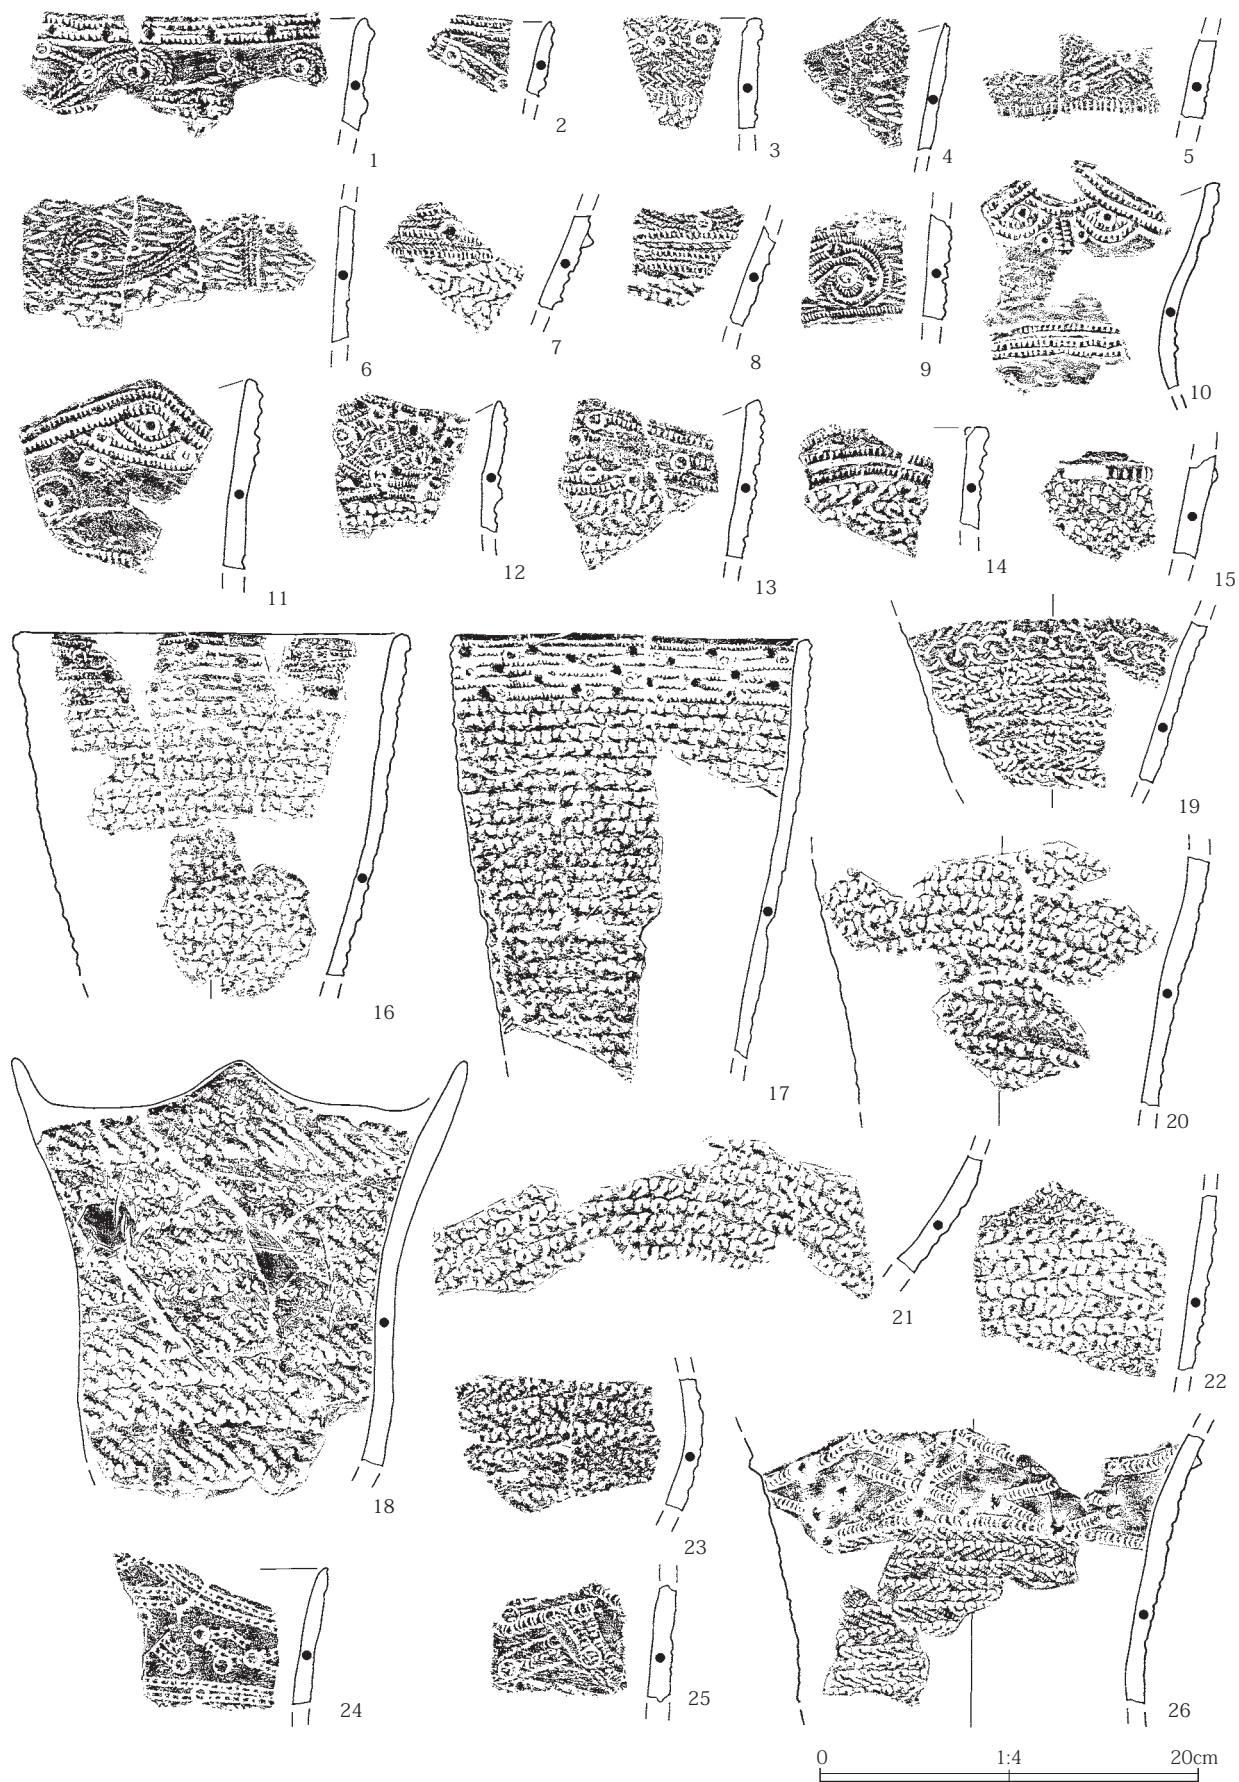 1
2
3
4
5
6
7
8
9
10
11
12
13
14
15
16
17
18
19
20
21
22
23
24
25
26
0 1:4 20cm